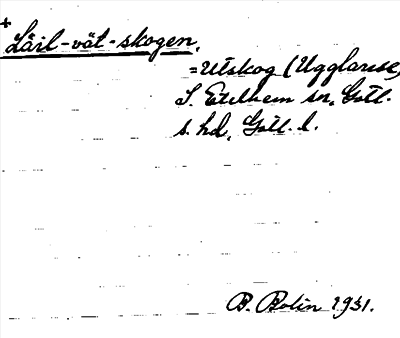 +
Läil-vät-skogen.
=Utskog (Ugglause)
I. Etelhem sn, Gotl.
s. hd, Gotl. l.
B. Bolin 1931.